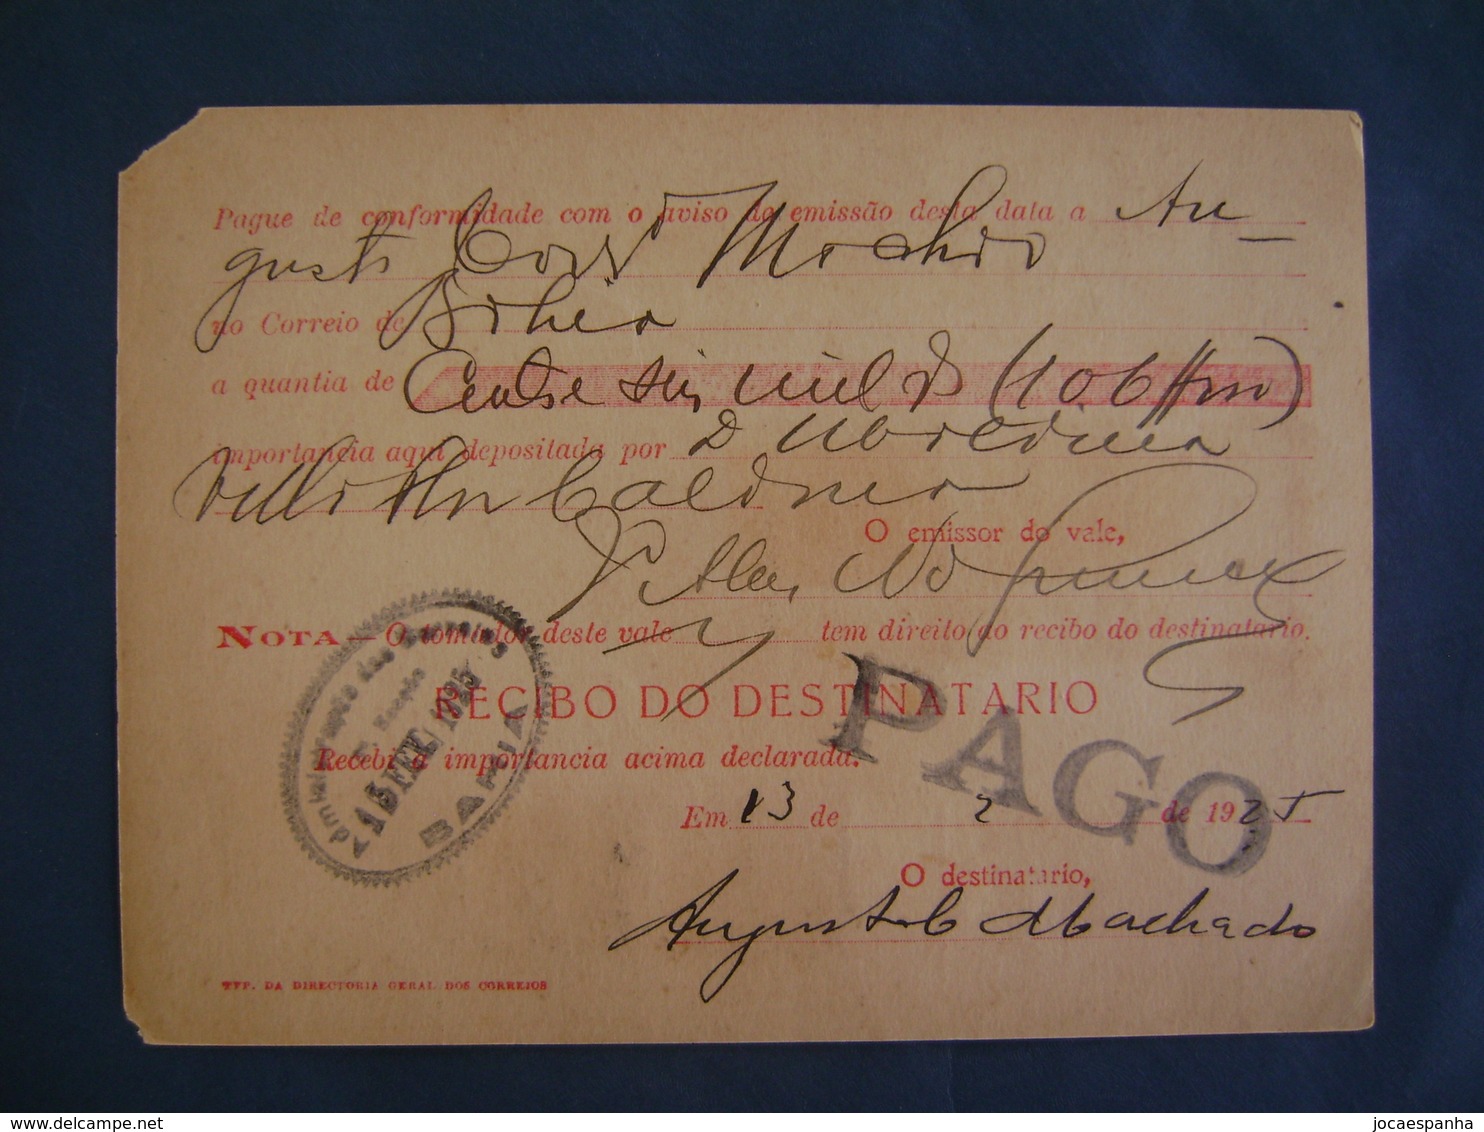 Pague de conformidade com o aviso de emissão desta data a Au-
gusto Machado
no Correio de Bahia
a quantia de Cento e seis mil rs (106$000)
importancia aqui depositada por D
O emissor do vale,
NOTA — O tomador deste vale tem direito ao recibo do destinatario.
RECIBO DO DESTINATARIO
Recebi a importancia acima declarada.
Em 13 de 2 de 1925
O destinatario,
Augusto C Machado
TYP. DA DIRECTORIA GERAL DOS CORREIOS
PAGO
dministração dos Correios
Secção
13 FEV. 1925
BAHIA
jocaespanha